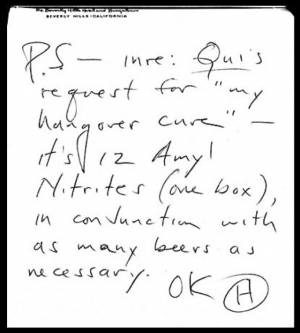 The Beverly Hills Hotel and Bungalows
BEVERLY HILLS · CALIFORNIA
P.S — inre: Qui's
request for "my
hangover cure" —
it's 12 Amyl
Nitrites (one box),
in conJunction with
as many beers as
necessary.
OK H